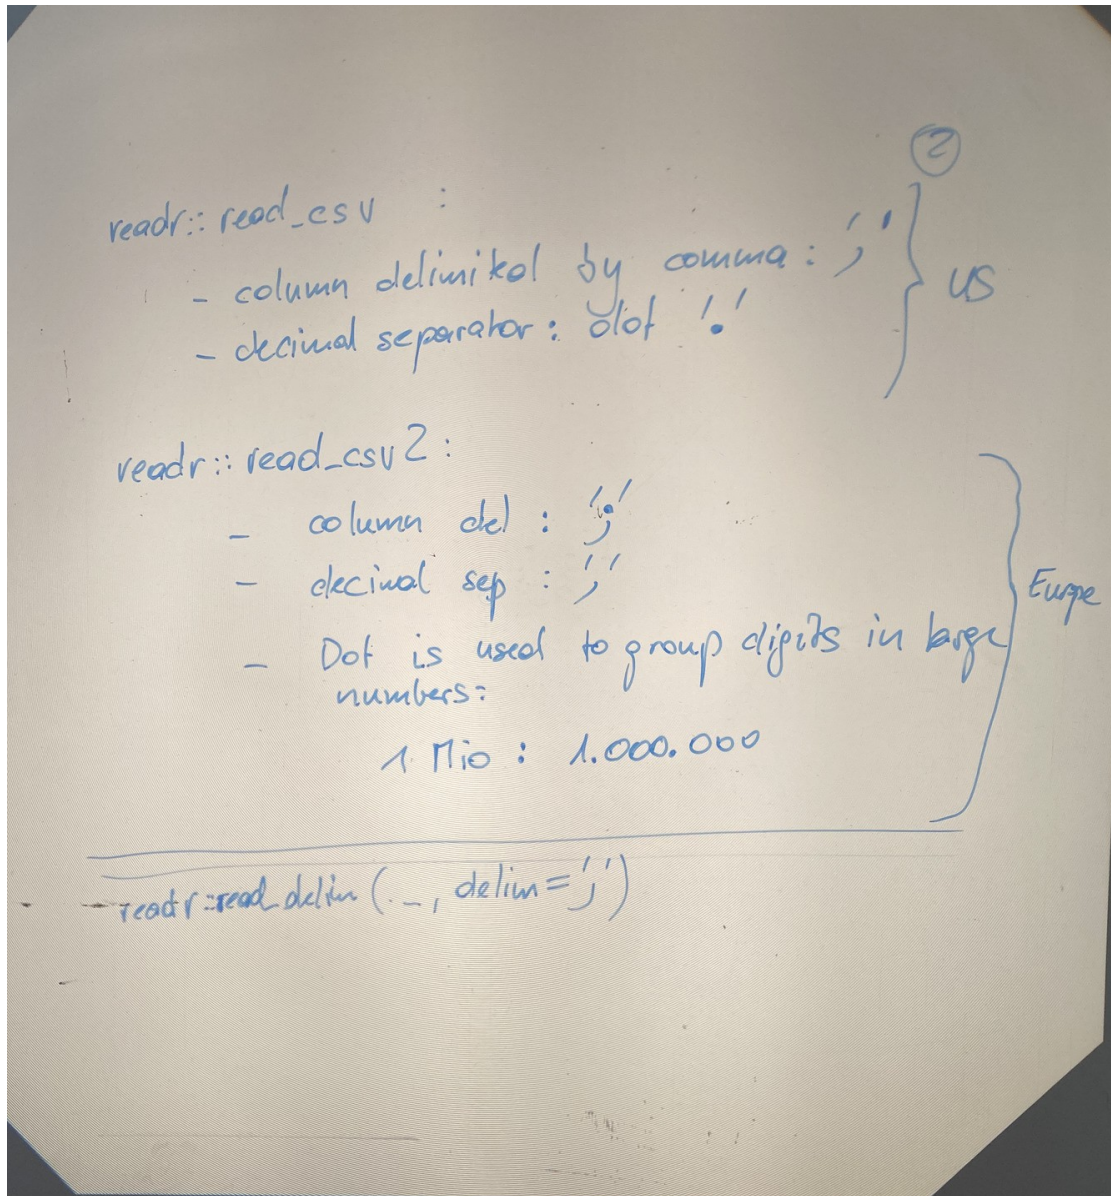 2
readr::read_csv :
- column delimited by comma : ','
- decimal separator : dot '.'
US
readr::read_csv2 :
- column del : ';'
- decimal sep : ','
- Dot is used to group digits in large
numbers:
1 Mio : 1.000.000
Europe
readr::read_delim (..., delim=';')